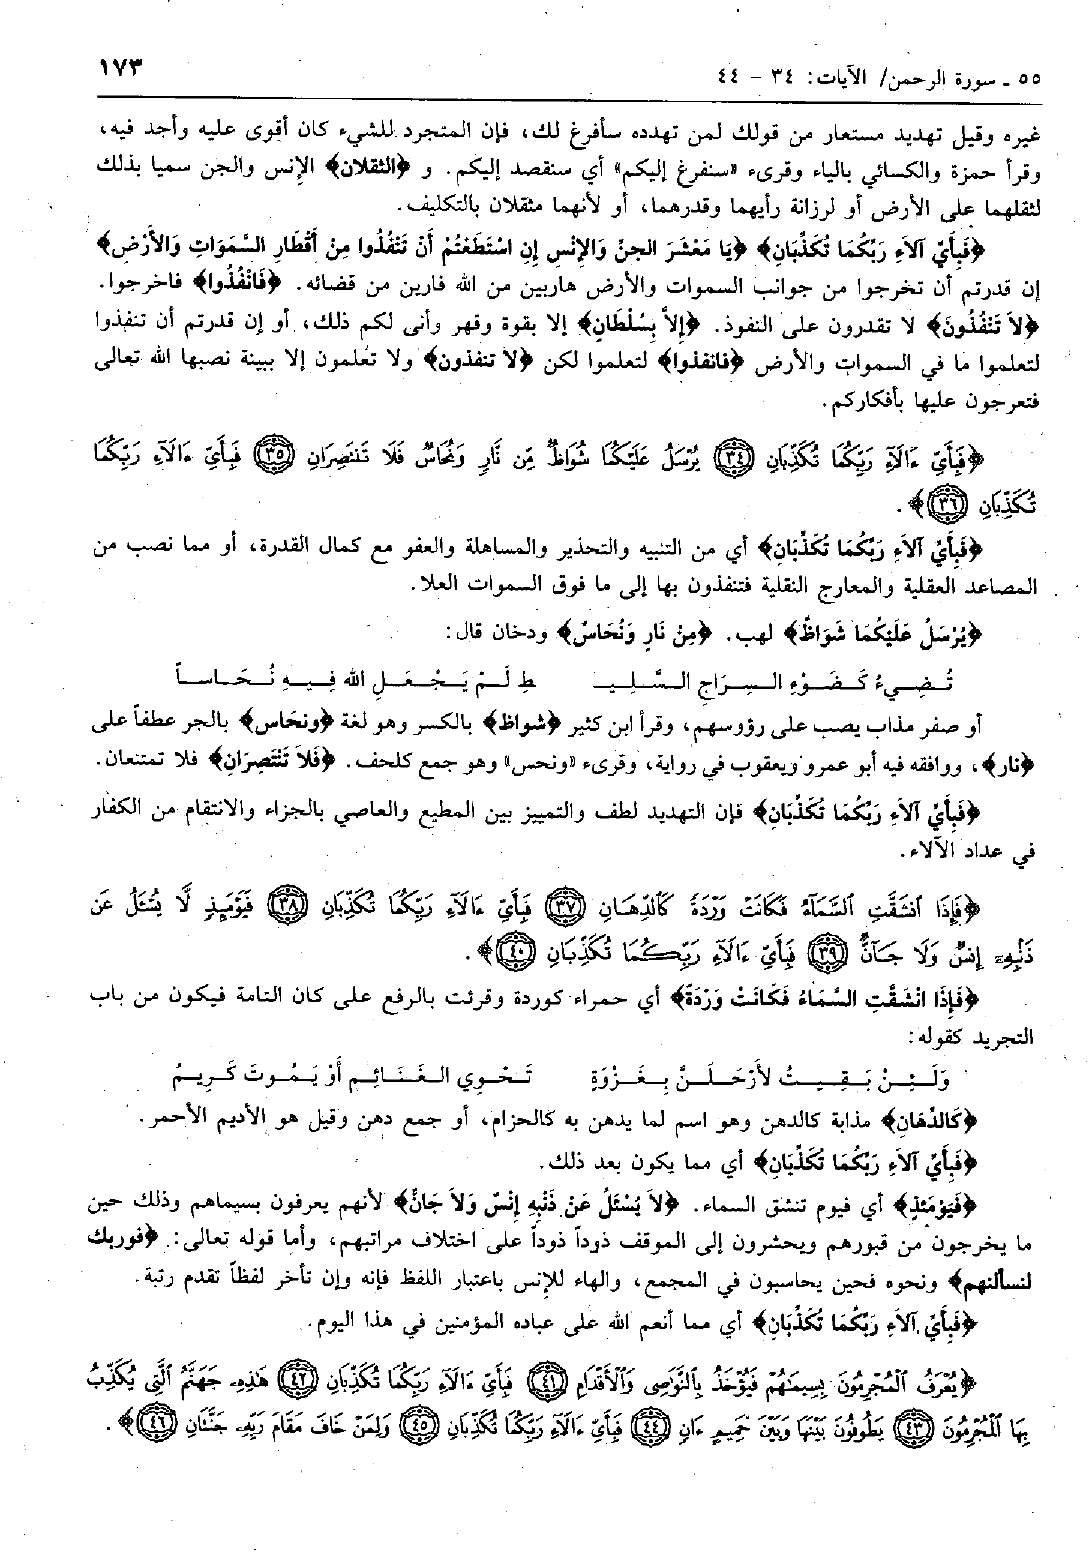 ٥٥ ـ سورة الرحمن/ الآيات: ٣٤ - ٤٤ ١٧٣
غيره وقيل تهديد مستعار من قولك لمن تهدده سأفرغ لك، فإن المتجرد للشيء كان أقوى عليه وأجد فيه،
وقرأ حمزة والكسائي بالياء وقرىء «سنفرغ إليكم» أي سنقصد إليكم. و ﴿الثقلان﴾ الإنس والجن سميا بذلك
لثقلهما على الأرض أو لرزانة رأيهما وقدرهما، أو لأنهما مثقلان بالتكليف.
﴿فَبِأَيِّ آلاَءِ رَبِّكُمَا تُكَذِّبَانِ﴾ ﴿يا مَعْشَرَ الجِنِّ وَالإِنْسِ إِن اسْتَطَعْتُمْ أَنْ تَنْفُذُوا مِنْ أَقْطَارِ السَّمَوَاتِ وَالأَرْضِ﴾
إن قدرتم أن تخرجوا من جوانب السموات والأرض هاربين من الله فارين من قضائه. ﴿فَانْفُذُوا﴾ فاخرجوا.
﴿لاَ تَنْفُذُونَ﴾ لا تقدرون على النفوذ. ﴿إِلاَّ بِسُلْطَانٍ﴾ إلا بقوة وقهر وأنى لكم ذلك، أو إن قدرتم أن تنفذوا
لتعلموا ما في السموات والأرض ﴿فانفذوا﴾ لتعلموا لكن ﴿لا تنفذون﴾ ولا تعلمون إلا ببينة نصبها الله تعالى
فتعرجون عليها بأفكاركم.
﴿فَبِأَيِّ ءَالَآءِ رَبِّكُمَا تُكَذِّبَانِ ٣٤ يُرْسَلُ عَلَيْكُمَا شُوَاظٌ مِّن نَّارٍ وَنُحَاسٌ فَلَا تَنتَصِرَانِ ٣٥ فَبِأَيِّ ءَالَآءِ رَبِّكُمَا
تُكَذِّبَانِ ٣٦﴾.
﴿فَبِأَيِّ آلاَءِ رَبِّكُمَا تُكَذِّبَانِ﴾ أي من التنبيه والتحذير والمساهلة والعفو مع كمال القدرة، أو مما نصب من
المصاعد العقلية والمعارج النقلية فتنفذون بها إلى ما فوق السموات العلا.
﴿يُرْسَلُ عَلَيْكُمَا شَوَاظٌ﴾ لهب. ﴿مِنْ نَارٍ وَنُحَاسٌ﴾ ودخان قال:
تُـضِـيءُ كَـضَـوْءِ الـسِـرَاجِ الـسَّـلِـيـ طِ لَـمْ يَـجْـعَـلِ الله فِـيـهِ نُـحَـاسـاً
أو صفر مذاب يصب على رؤوسهم، وقرأ ابن كثير ﴿شواظ﴾ بالكسر وهو لغة ﴿ونحاس﴾ بالجر عطفاً على
﴿نار﴾، ووافقه فيه أبو عمرو ويعقوب في رواية، وقرىء «ونحس» وهو جمع كلحف. ﴿فَلاَ تَنْتَصِرَانِ﴾ فلا تمتنعان.
﴿فَبِأَيِّ آلاَءِ رَبِّكُمَا تُكَذِّبَانِ﴾ فإن التهديد لطف والتمييز بين المطيع والعاصي بالجزاء والانتقام من الكفار
في عداد الآلاء.
﴿فَإِذَا ٱنشَقَّتِ ٱلسَّمَآءُ فَكَانَتْ وَرْدَةً كَٱلدِّهَانِ ٣٧ فَبِأَيِّ ءَالَآءِ رَبِّكُمَا تُكَذِّبَانِ ٣٨ فَيَوْمَئِذٍ لَّا يُسْـَٔلُ عَن
ذَنۢبِهِۦٓ إِنسٌ وَلَا جَآنٌّ ٣٩ فَبِأَيِّ ءَالَآءِ رَبِّكُمَا تُكَذِّبَانِ ٤٠﴾.
﴿فَإِذَا انْشَقَّتِ السَّمَاءُ فَكَانَتْ وَرْدَةً﴾ أي حمراء كوردة وقرئت بالرفع على كان التامة فيكون من باب
التجريد كقوله:
وَلَـئِـنْ بَـقِـيـتُ لأَرْحَـلَـنَّ بِـغَـزْوَةٍ تَـحْـوِي الـغَـنَـائِـم أَوْ يَـمُـوتَ كَـرِيـمُ
﴿كَالدِّهَانِ﴾ مذابة كالدهن وهو اسم لما يدهن به كالحزام، أو جمع دهن وقيل هو الأديم الأحمر.
﴿فَبِأَيِّ آلاَءِ رَبِّكُمَا تُكَذِّبَانِ﴾ أي مما يكون بعد ذلك.
﴿فَيَوْمَئِذٍ﴾ أي فيوم تنشق السماء. ﴿لاَ يُسْئَلُ عَنْ ذَنْبِهِ إِنْسٌ وَلاَ جَانٌّ﴾ لأنهم يعرفون بسيماهم وذلك حين
ما يخرجون من قبورهم ويحشرون إلى الموقف ذوداً ذوداً على اختلاف مراتبهم، وأما قوله تعالى: ﴿فوربك
لنسألنهم﴾ ونحوه فحين يحاسبون في المجمع، والهاء للإنس باعتبار اللفظ فإنه وإن تأخر لفظاً تقدم رتبة.
﴿فَبِأَيِّ آلاَءِ رَبِّكُمَا تُكَذِّبَانِ﴾ أي مما أنعم الله على عباده المؤمنين في هذا اليوم.
﴿يُعْرَفُ ٱلْمُجْرِمُونَ بِسِيمَٰهُمْ فَيُؤْخَذُ بِٱلنَّوَٰصِى وَٱلْأَقْدَامِ ٤١ فَبِأَيِّ ءَالَآءِ رَبِّكُمَا تُكَذِّبَانِ ٤٢ هَٰذِهِۦ جَهَنَّمُ ٱلَّتِى يُكَذِّبُ
بِهَا ٱلْمُجْرِمُونَ ٤٣ يَطُوفُونَ بَيْنَهَا وَبَيْنَ حَمِيمٍ ءَانٍ ٤٤ فَبِأَيِّ ءَالَآءِ رَبِّكُمَا تُكَذِّبَانِ ٤٥ وَلِمَنْ خَافَ مَقَامَ رَبِّهِۦ جَنَّتَانِ ٤٦﴾.